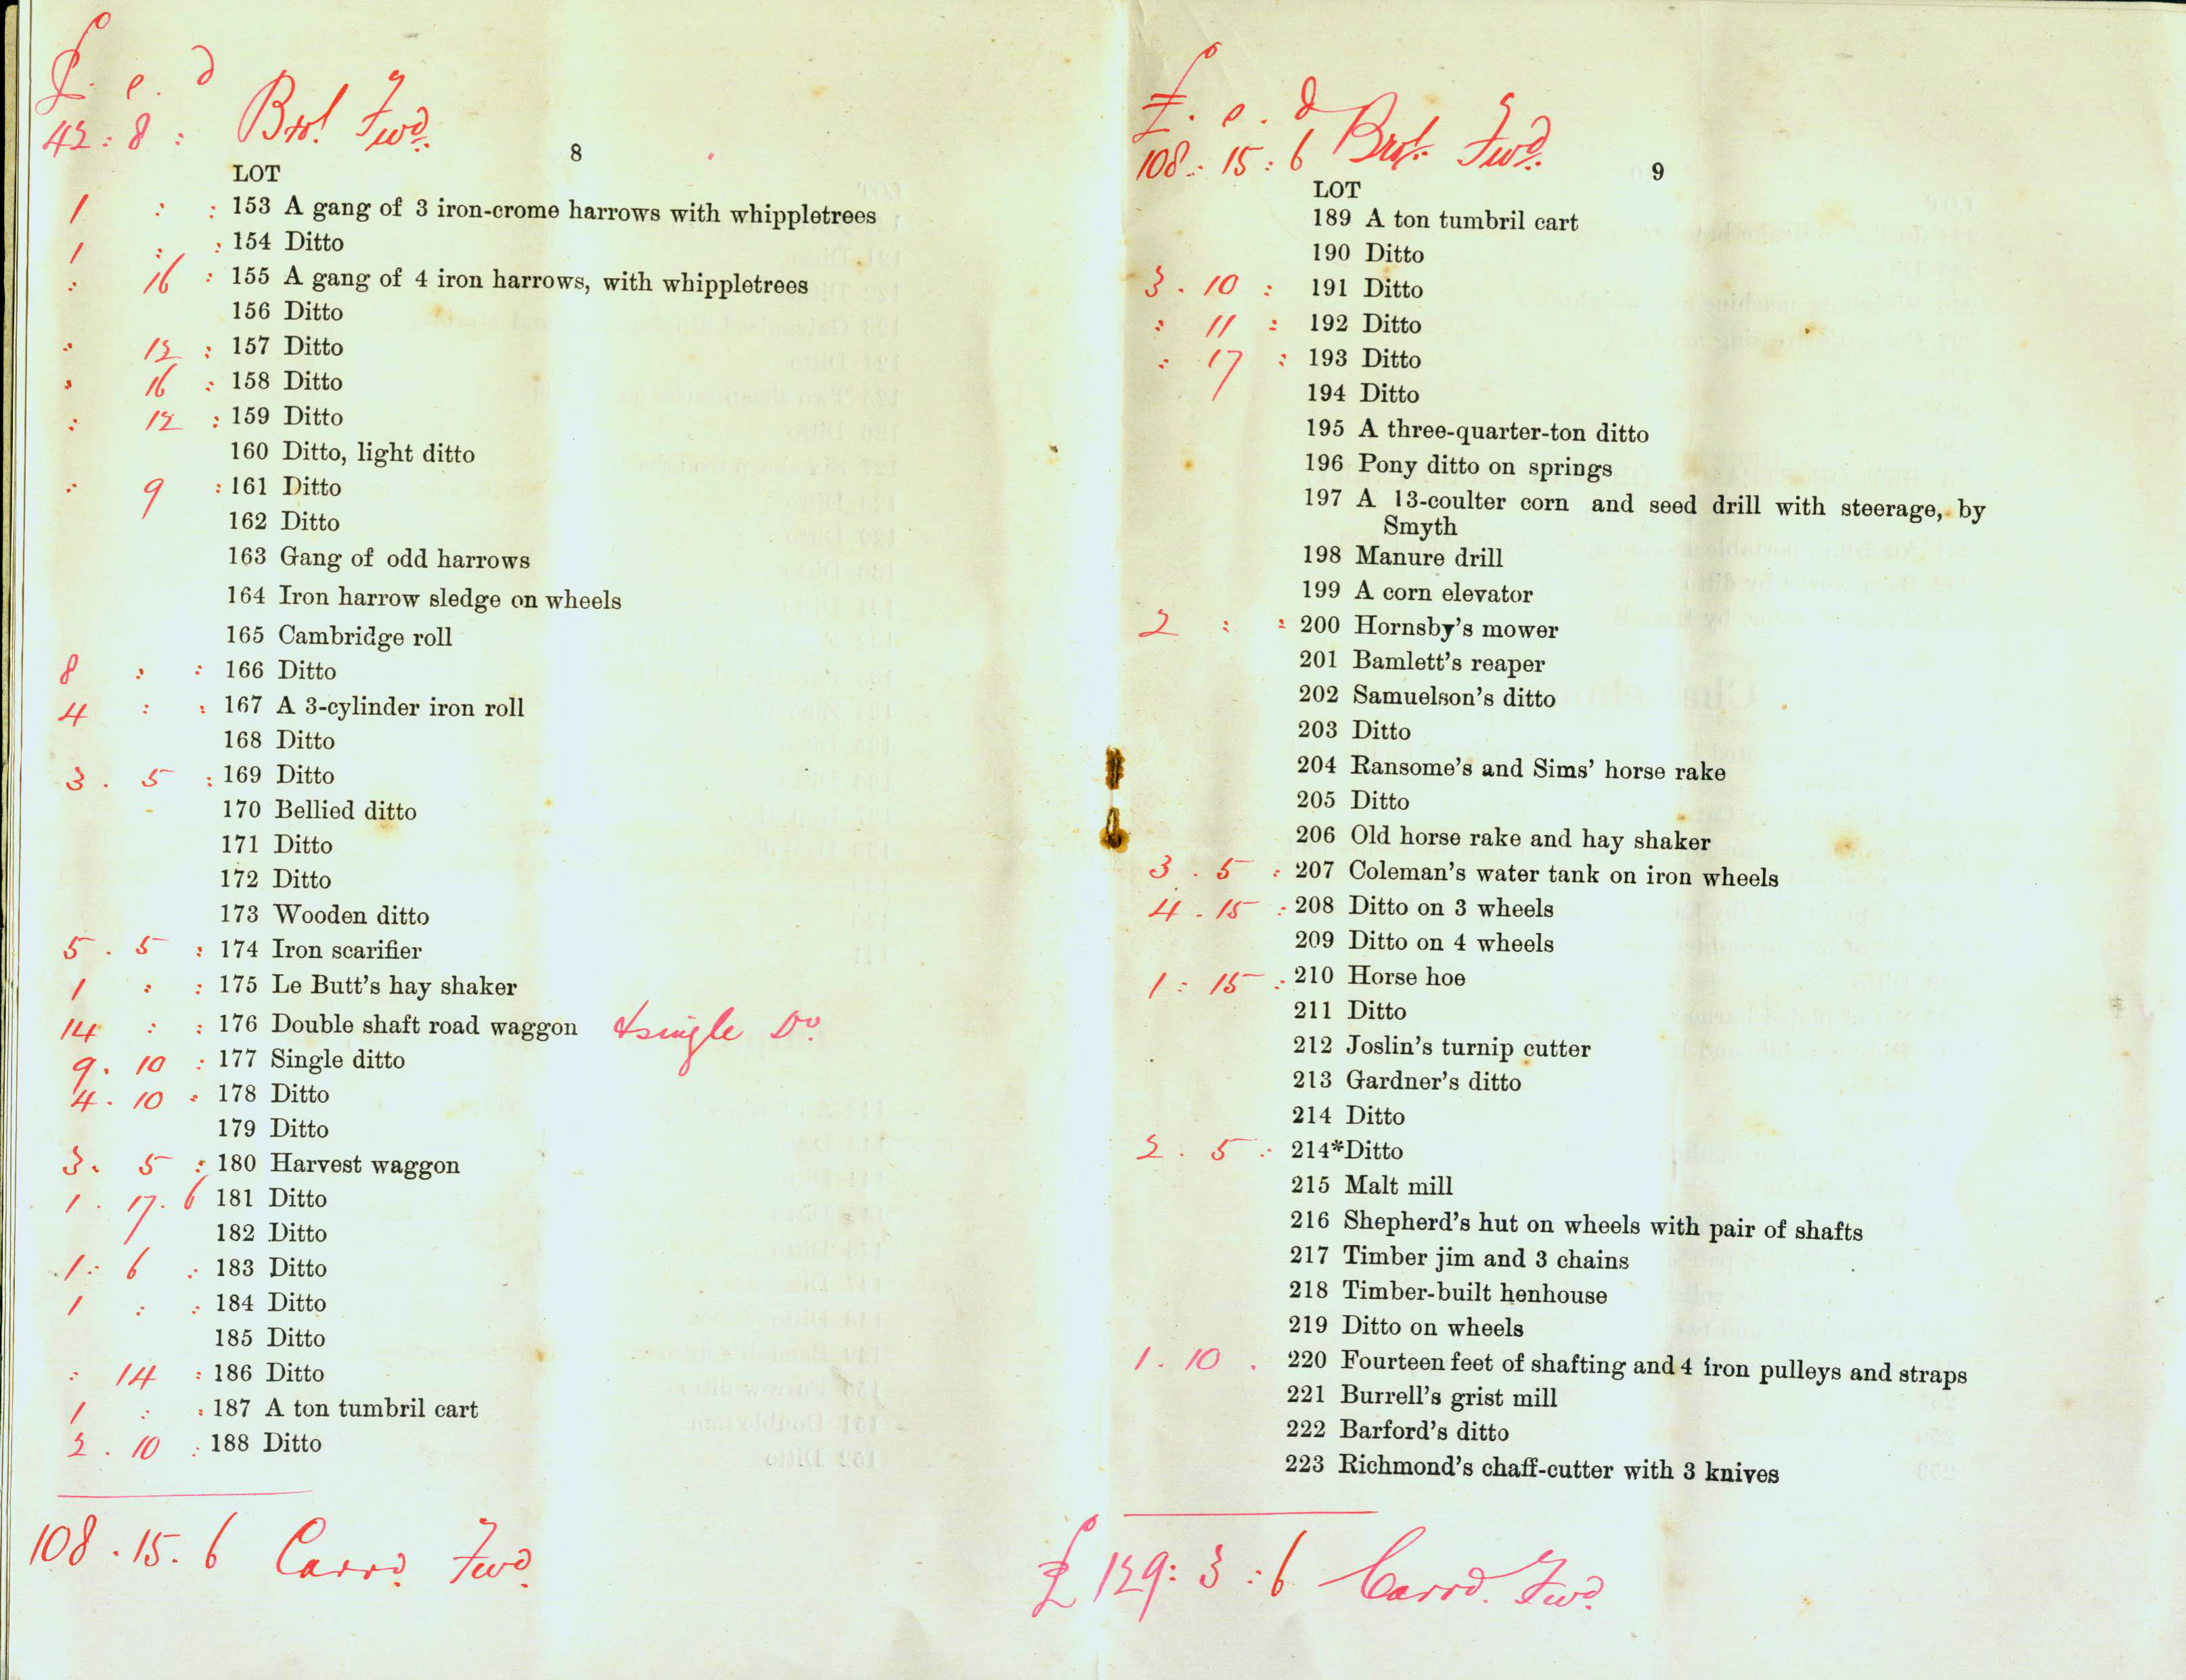 £. s. d
42 : 8 : Brot. Fwd.
8
LOT
1 : : 153 A gang of 3 iron-crome harrows with whippletrees
1 : : 154 Ditto
: 16 : 155 A gang of 4 iron harrows, with whippletrees
156 Ditto
: 12 : 157 Ditto
: 16 : 158 Ditto
: 12 : 159 Ditto
160 Ditto, light ditto
: 9 : 161 Ditto
162 Ditto
163 Gang of odd harrows
164 Iron harrow sledge on wheels
165 Cambridge roll
8 : : 166 Ditto
4 : : 167 A 3-cylinder iron roll
168 Ditto
3 . 5 : 169 Ditto
170 Bellied ditto
171 Ditto
172 Ditto
173 Wooden ditto
5 . 5 : 174 Iron scarifier
1 : : 175 Le Butt's hay shaker
14 : : 176 Double shaft road waggon & single Do.
9 . 10 : 177 Single ditto
4 . 10 : 178 Ditto
179 Ditto
3 . 5 : 180 Harvest waggon
1 . 17 . 6 181 Ditto
182 Ditto
1 : 6 : 183 Ditto
1 : : 184 Ditto
185 Ditto
: 14 : 186 Ditto
1 : : 187 A ton tumbril cart
2 . 10 : 188 Ditto
108 . 15 . 6 Carrd. Fwd.
£ . s . d
108 : 15 : 6 Brot. Fwd.
9
LOT
189 A ton tumbril cart
190 Ditto
3 . 10 : 191 Ditto
: 11 : 192 Ditto
: 17 : 193 Ditto
194 Ditto
195 A three-quarter-ton ditto
196 Pony ditto on springs
197 A 13-coulter corn and seed drill with steerage, by
Smyth
198 Manure drill
199 A corn elevator
2 : : 200 Hornsby's mower
201 Bamlett's reaper
202 Samuelson's ditto
203 Ditto
204 Ransome's and Sims' horse rake
205 Ditto
206 Old horse rake and hay shaker
3 . 5 : 207 Coleman's water tank on iron wheels
4 . 15 : 208 Ditto on 3 wheels
209 Ditto on 4 wheels
1 : 15 : 210 Horse hoe
211 Ditto
212 Joslin's turnip cutter
213 Gardner's ditto
214 Ditto
2 . 5 : 214*Ditto
215 Malt mill
216 Shepherd's hut on wheels with pair of shafts
217 Timber jim and 3 chains
218 Timber-built henhouse
219 Ditto on wheels
1 . 10 . 220 Fourteen feet of shafting and 4 iron pulleys and straps
221 Burrell's grist mill
222 Barford's ditto
223 Richmond's chaff-cutter with 3 knives
£ 129 : 3 : 6 Carrd. Fwd.